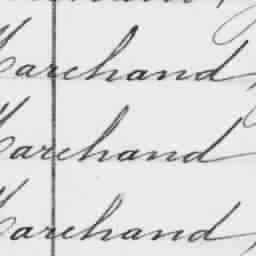 Marchand,
Marchand
Marchand,